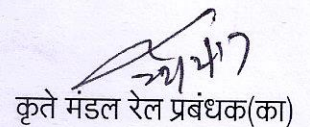 कृते मंडल रेल प्रबंधक(का)